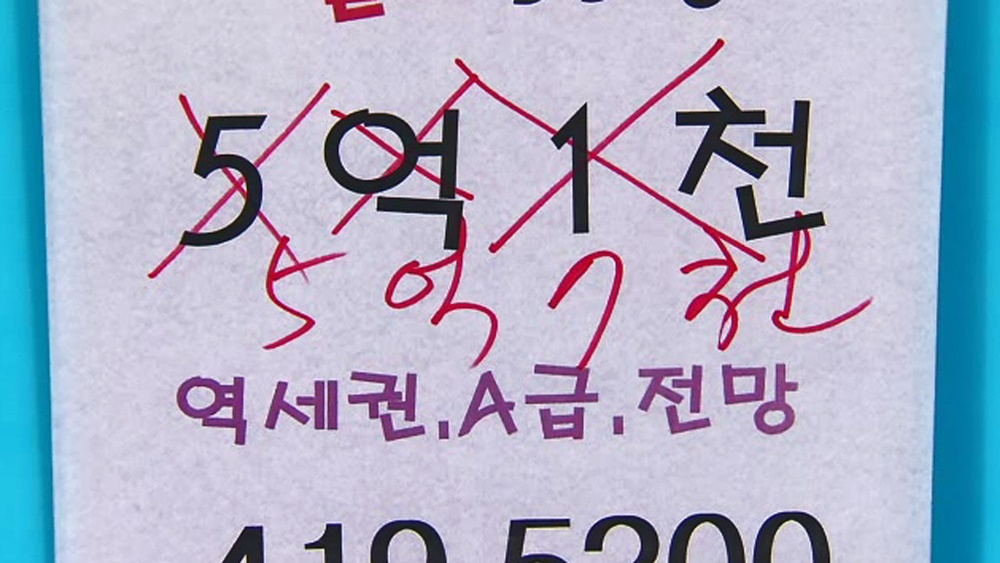 5억 1천
5억 7천
역세권.A급.전망
419-5200